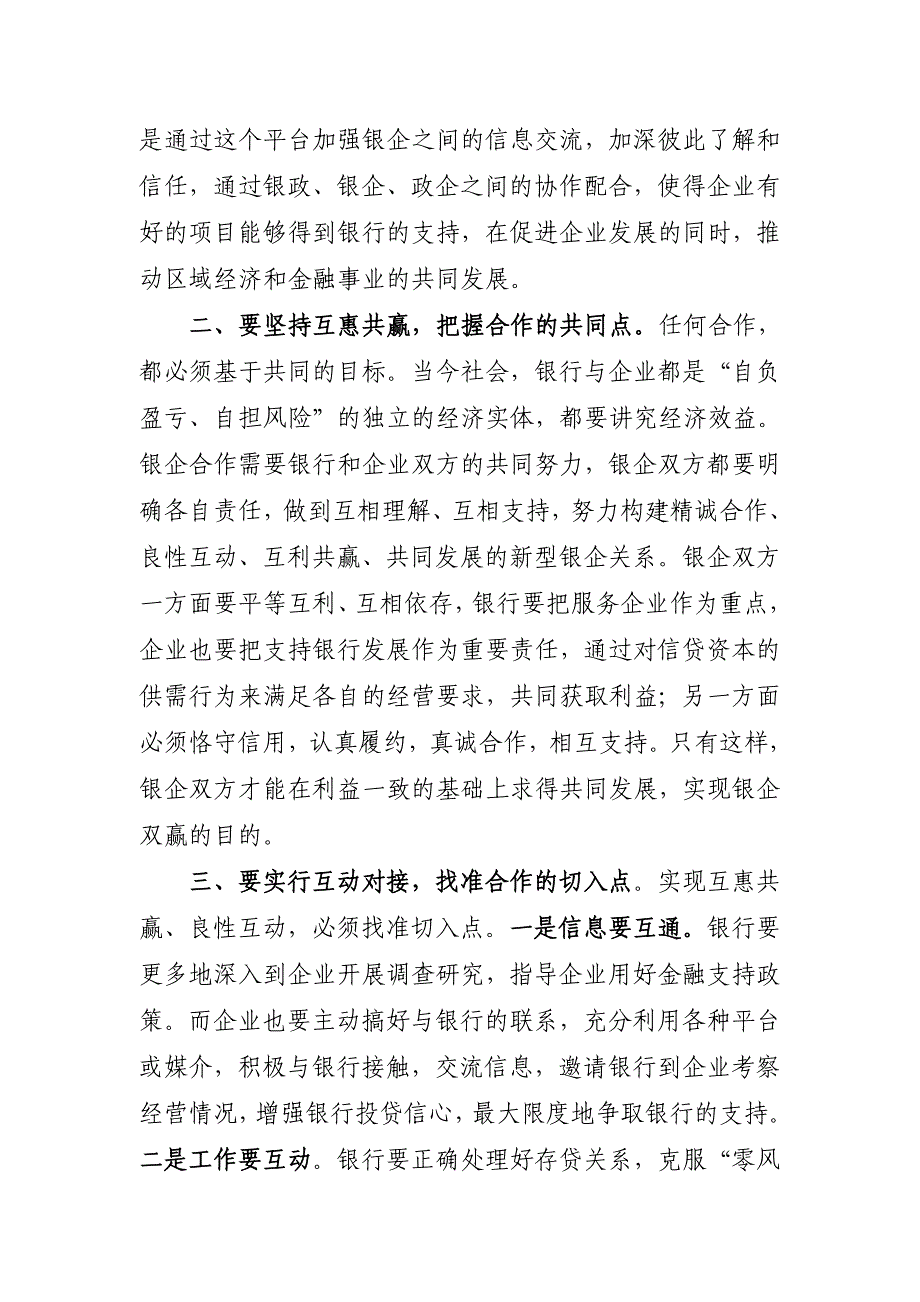 是通过这个平台加强银企之间的信息交流，加深彼此了解和
信任，通过银政、银企、政企之间的协作配合，使得企业有
好的项目能够得到银行的支持，在促进企业发展的同时，推
动区域经济和金融事业的共同发展。
二、要坚持互惠共赢，把握合作的共同点。任何合作，
都必须基于共同的目标。当今社会，银行与企业都是“自负
盈亏、自担风险”的独立的经济实体，都要讲究经济效益。
银企合作需要银行和企业双方的共同努力，银企双方都要明
确各自责任，做到互相理解、互相支持，努力构建精诚合作、
良性互动、互利共赢、共同发展的新型银企关系。银企双方
一方面要平等互利、互相依存，银行要把服务企业作为重点，
企业也要把支持银行发展作为重要责任，通过对信贷资本的
供需行为来满足各自的经营要求，共同获取利益；另一方面
必须恪守信用，认真履约，真诚合作，相互支持。只有这样，
银企双方才能在利益一致的基础上求得共同发展，实现银企
双赢的目的。
三、要实行互动对接，找准合作的切入点。实现互惠共
赢、良性互动，必须找准切入点。一是信息要互通。银行要
更多地深入到企业开展调查研究，指导企业用好金融支持政
策。而企业也要主动搞好与银行的联系，充分利用各种平台
或媒介，积极与银行接触，交流信息，邀请银行到企业考察
经营情况，增强银行投贷信心，最大限度地争取银行的支持。
二是工作要互动。银行要正确处理好存贷关系，克服“零风